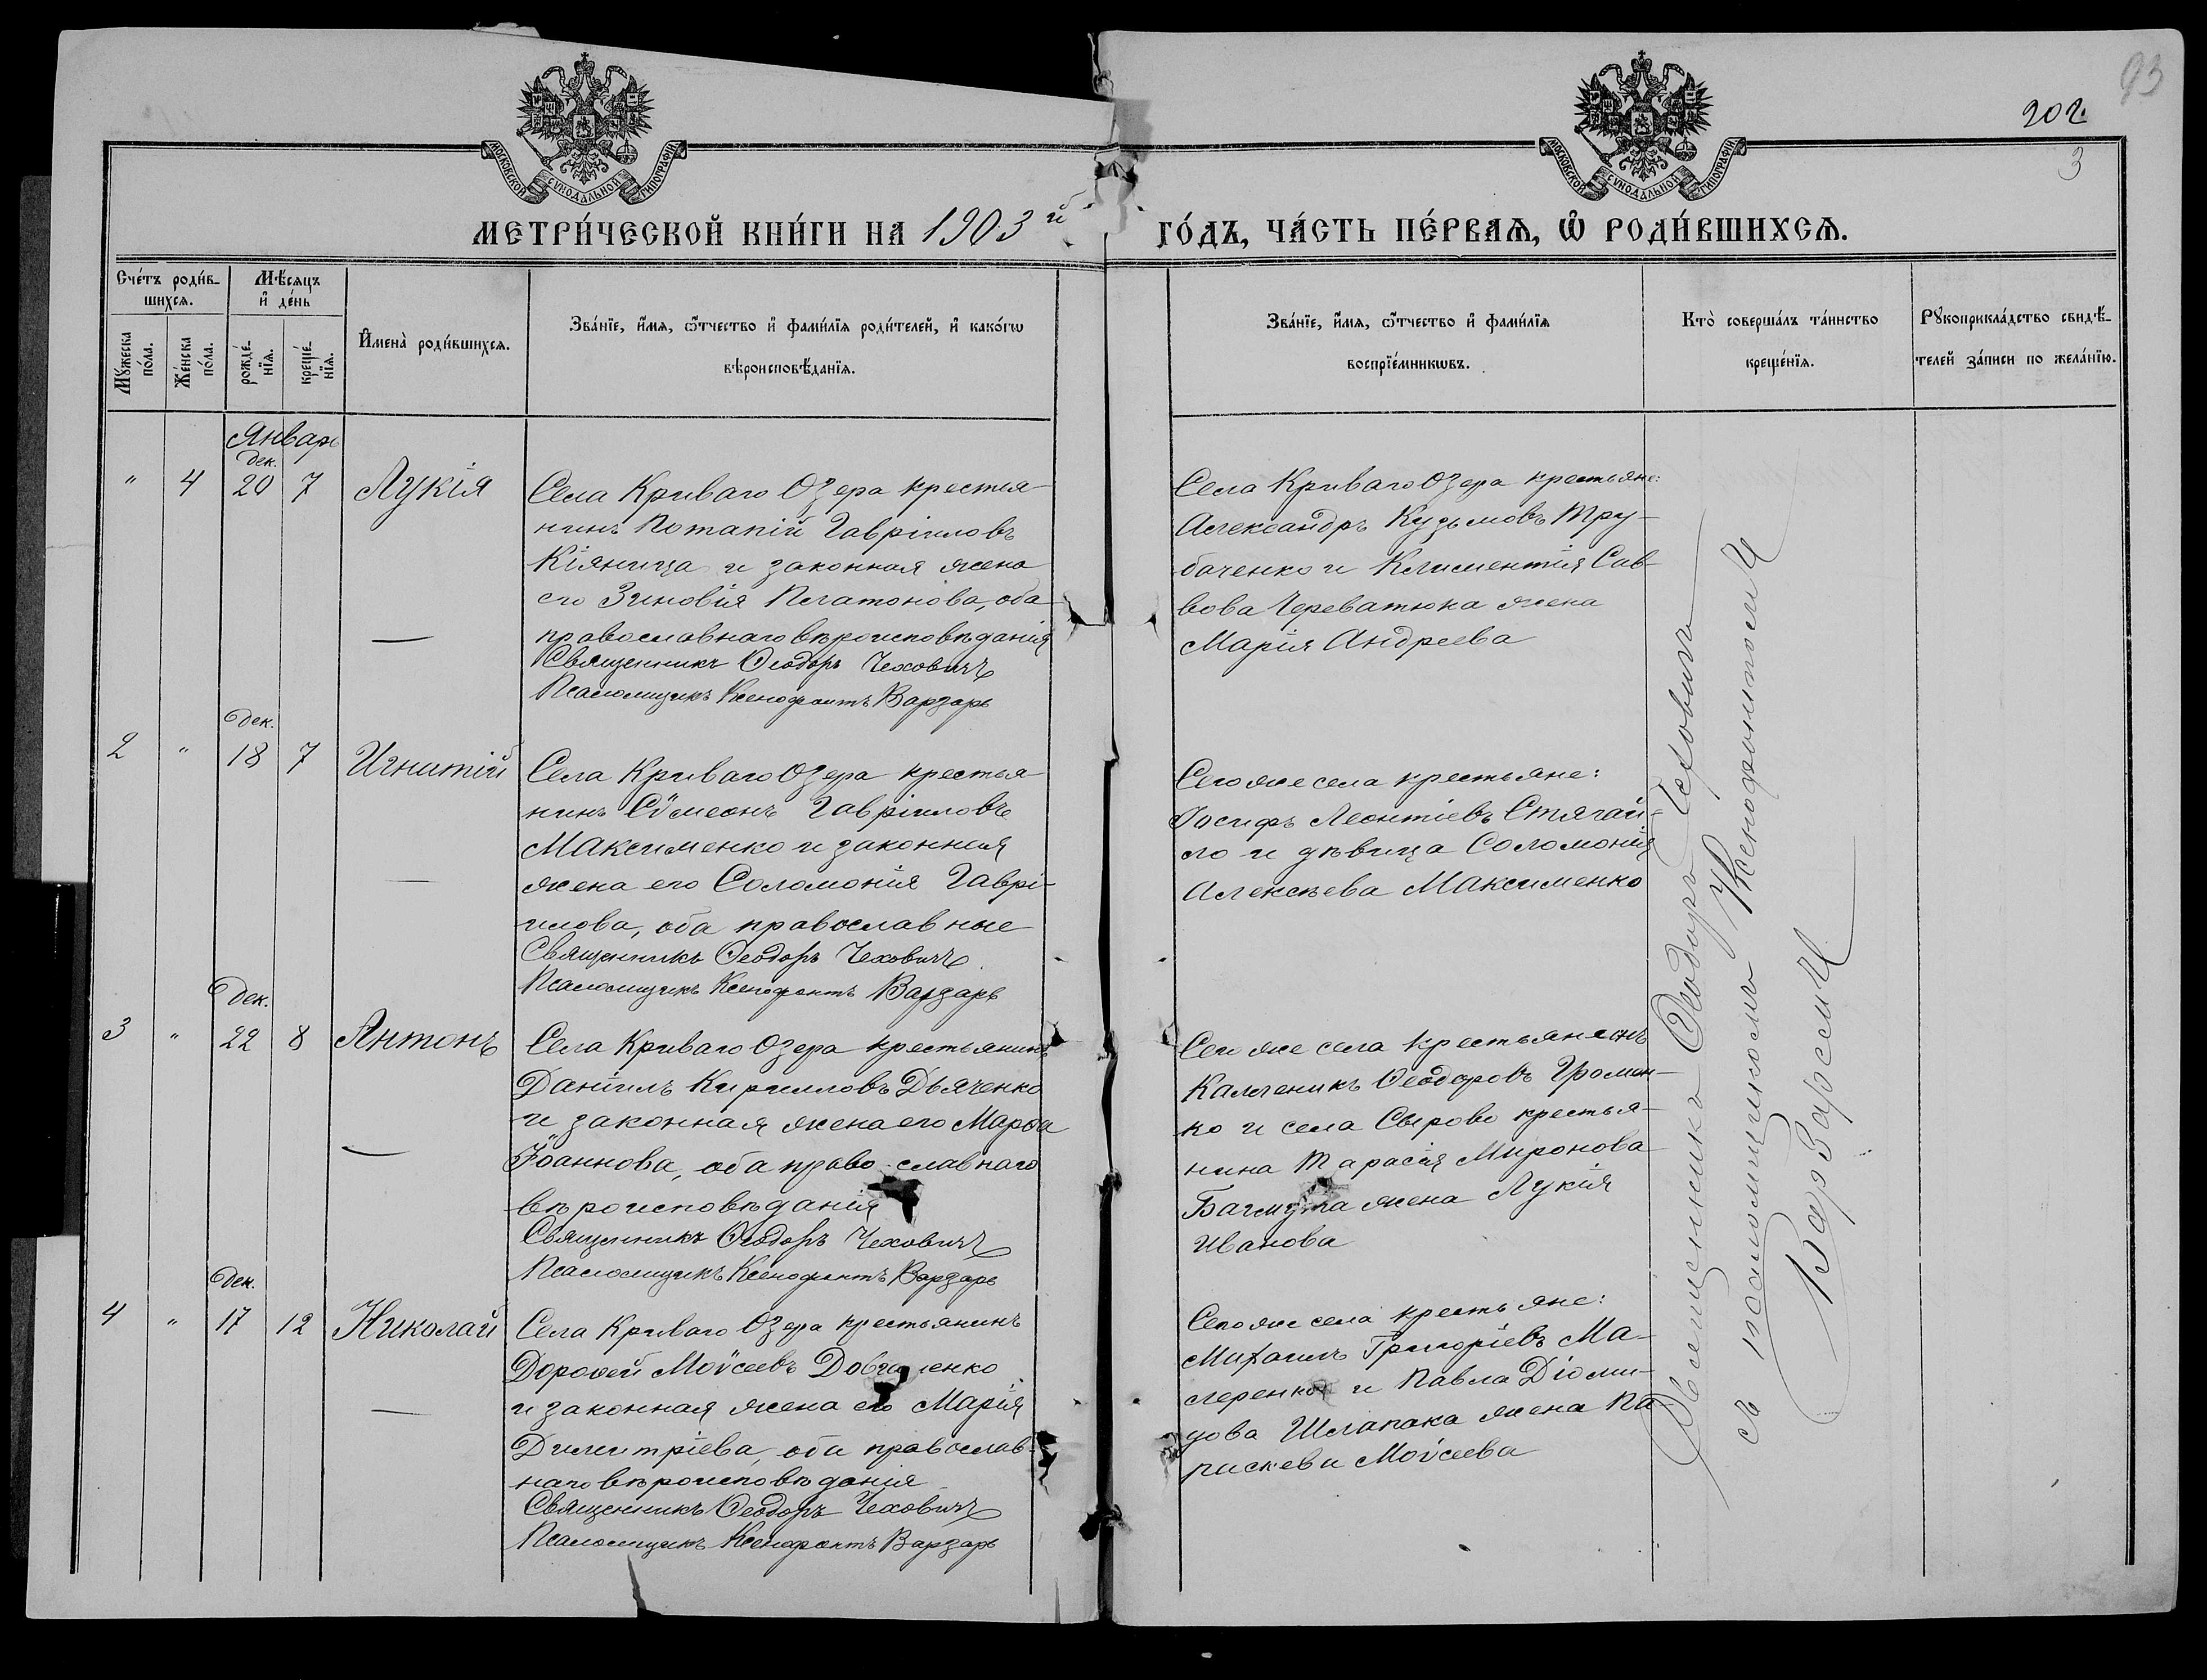 93
202.
3
МОСКОВСКОЙ СУНОДАЛЬНОЙ ТИПОГРАФІИ
МОСКОВСКОЙ СУНОДАЛЬНОЙ ТИПОГРАФІИ
МЕТРИ́ЧЕСКОЙ КНИ́ГИ НА 1903й ГО́ДЪ, ЧА́СТЬ ПЕ́РВАѦ, Ѡ҆ РОДИ́ВШИХСѦ.
Сче́тъ роди́в-
шихсѧ.
Мꙋ́жеска
по́ла.
Же́нска
по́ла.
Мѣ́сѧцъ
и҆ де́нь
рожде́-
нїѧ.
креще́-
нїѧ.
И҆мена̀ роди́вшихсѧ.
Зва́нїе, и҆́мѧ, ѻ҆́тчество и҆ фами́лїѧ роди́телей, и҆ како́гѡ
вѣроисповѣ́данїѧ.
Зва́нїе, и҆́мѧ, ѻ҆́тчество и҆ фами́лїѧ
воспрїе́мникѡвъ.
Кто̀ соверша́лъ та́инство
креще́нїѧ.
Рꙋкоприкла́дство свидѣ́-
телей за́писи по жела́нїю.
Январь
дек.
" 4 20 7 Лукія
Села Криваго Озера крестья-
нинъ Потапій Гавріиловъ
Кіяница и законная жена
его Зиновія Платонова, оба
православнаго вѣроисповѣданія
Священникъ Ѳеодоръ Чеховичъ
Псаломщикъ Ксенофонтъ Варзарь
Села Криваго Озера крестьяне:
Александръ Кузьмовъ Тру-
баченко и Климентія Сав-
вова Череватюка жена
Марія Андреева
дек.
2 " 18 7 Игнатій
Села Криваго Озера крестья-
нинъ Сѵмеонъ Гавріиловъ
Максименко и законная
жена его Соломонія Гаврі-
илова, оба православные
Священникъ Ѳеодоръ Чеховичъ
Псаломщикъ Ксенофонтъ Варзарь
Сего же села крестьяне:
Іосифъ Леонтіевъ Стягай-
ло и дѣвица Соломонія
Алексѣева Максименко
Дек.
3 " 22 8 Антонъ
Села Криваго Озера крестьянинъ
Даніилъ Кирилловъ Дьяченко
и законная жена его Марѳа
Іоаннова, оба православнаго
вѣроисповѣданія
Священникъ Ѳеодоръ Чеховичъ
Псаломщикъ Ксенофонтъ Варзарь
Сего же села крестьянинъ
Ѳеодоровъ Громен-
ко и села Сырово крестья-
нина Тарасія Миронова
Багмута жена Лукія
Иванова
Дек.
4 " 17 12 Николай
Села Криваго Озера крестьянинъ
Дороѳей Моѵсеевъ
и законная жена его Марія
Димитріева, оба православ-
наго вѣроисповѣданія
Священникъ Ѳеодоръ Чеховичъ
Псаломщикъ Ксенофонтъ Варзарь
Сего же села крестьяне:
Михаилъ Григоріевъ Ма-
леренко и Павла Діоми-
дова Шлапака жена Па-
раскева Моѵсеева
Священникъ Ѳеодоръ Чеховичъ
съ псаломщикомъ Ксенофонтомъ
Варзаремъ